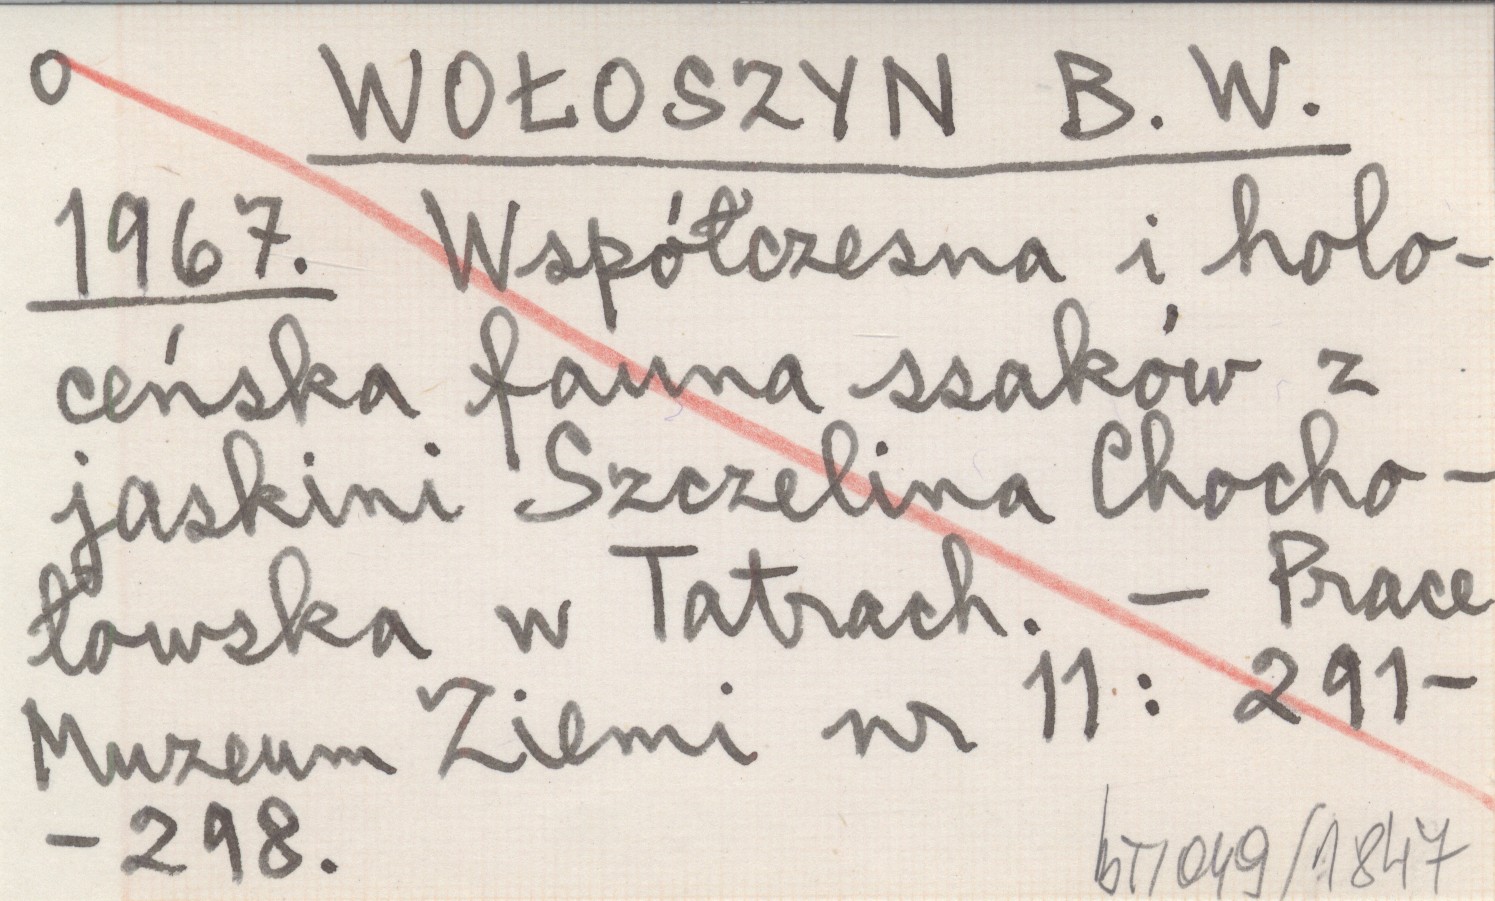 o WOŁOSZYN B. W.
1967. Współczesna i holo-
ceńska fauna ssaków z
jaskini Szczelina Chocho-
łowska w Tatrach. – Prace
Muzeum Ziemi nr 11: 291-
-298.
bT/049/1847